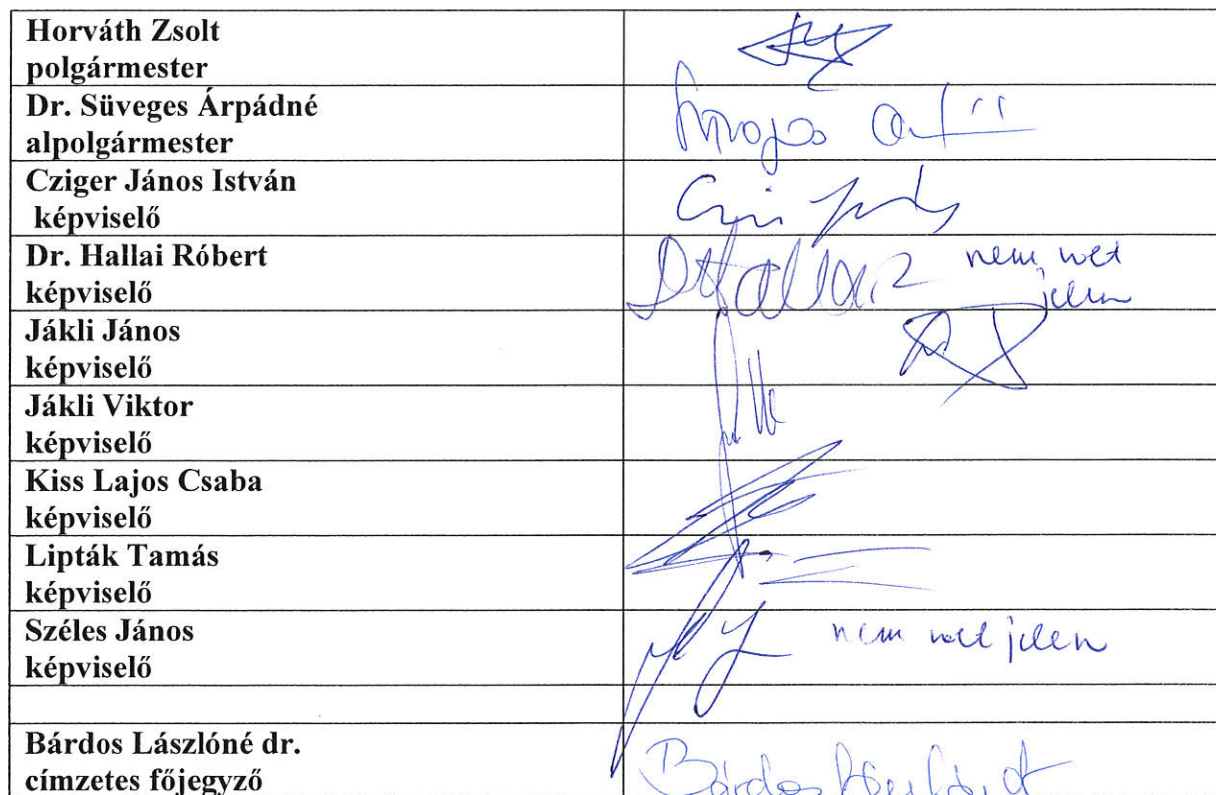 Horváth Zsolt
polgármester
Dr. Süveges Árpádné
alpolgármester
Cziger János István
képviselő
Dr. Hallai Róbert
képviselő
nem volt
jelen
Jákli János
képviselő
Jákli Viktor
képviselő
Kiss Lajos Csaba
képviselő
Lipták Tamás
képviselő
Széles János
képviselő
nem volt jelen
Bárdos Lászlóné dr.
címzetes főjegyző
Bárdos